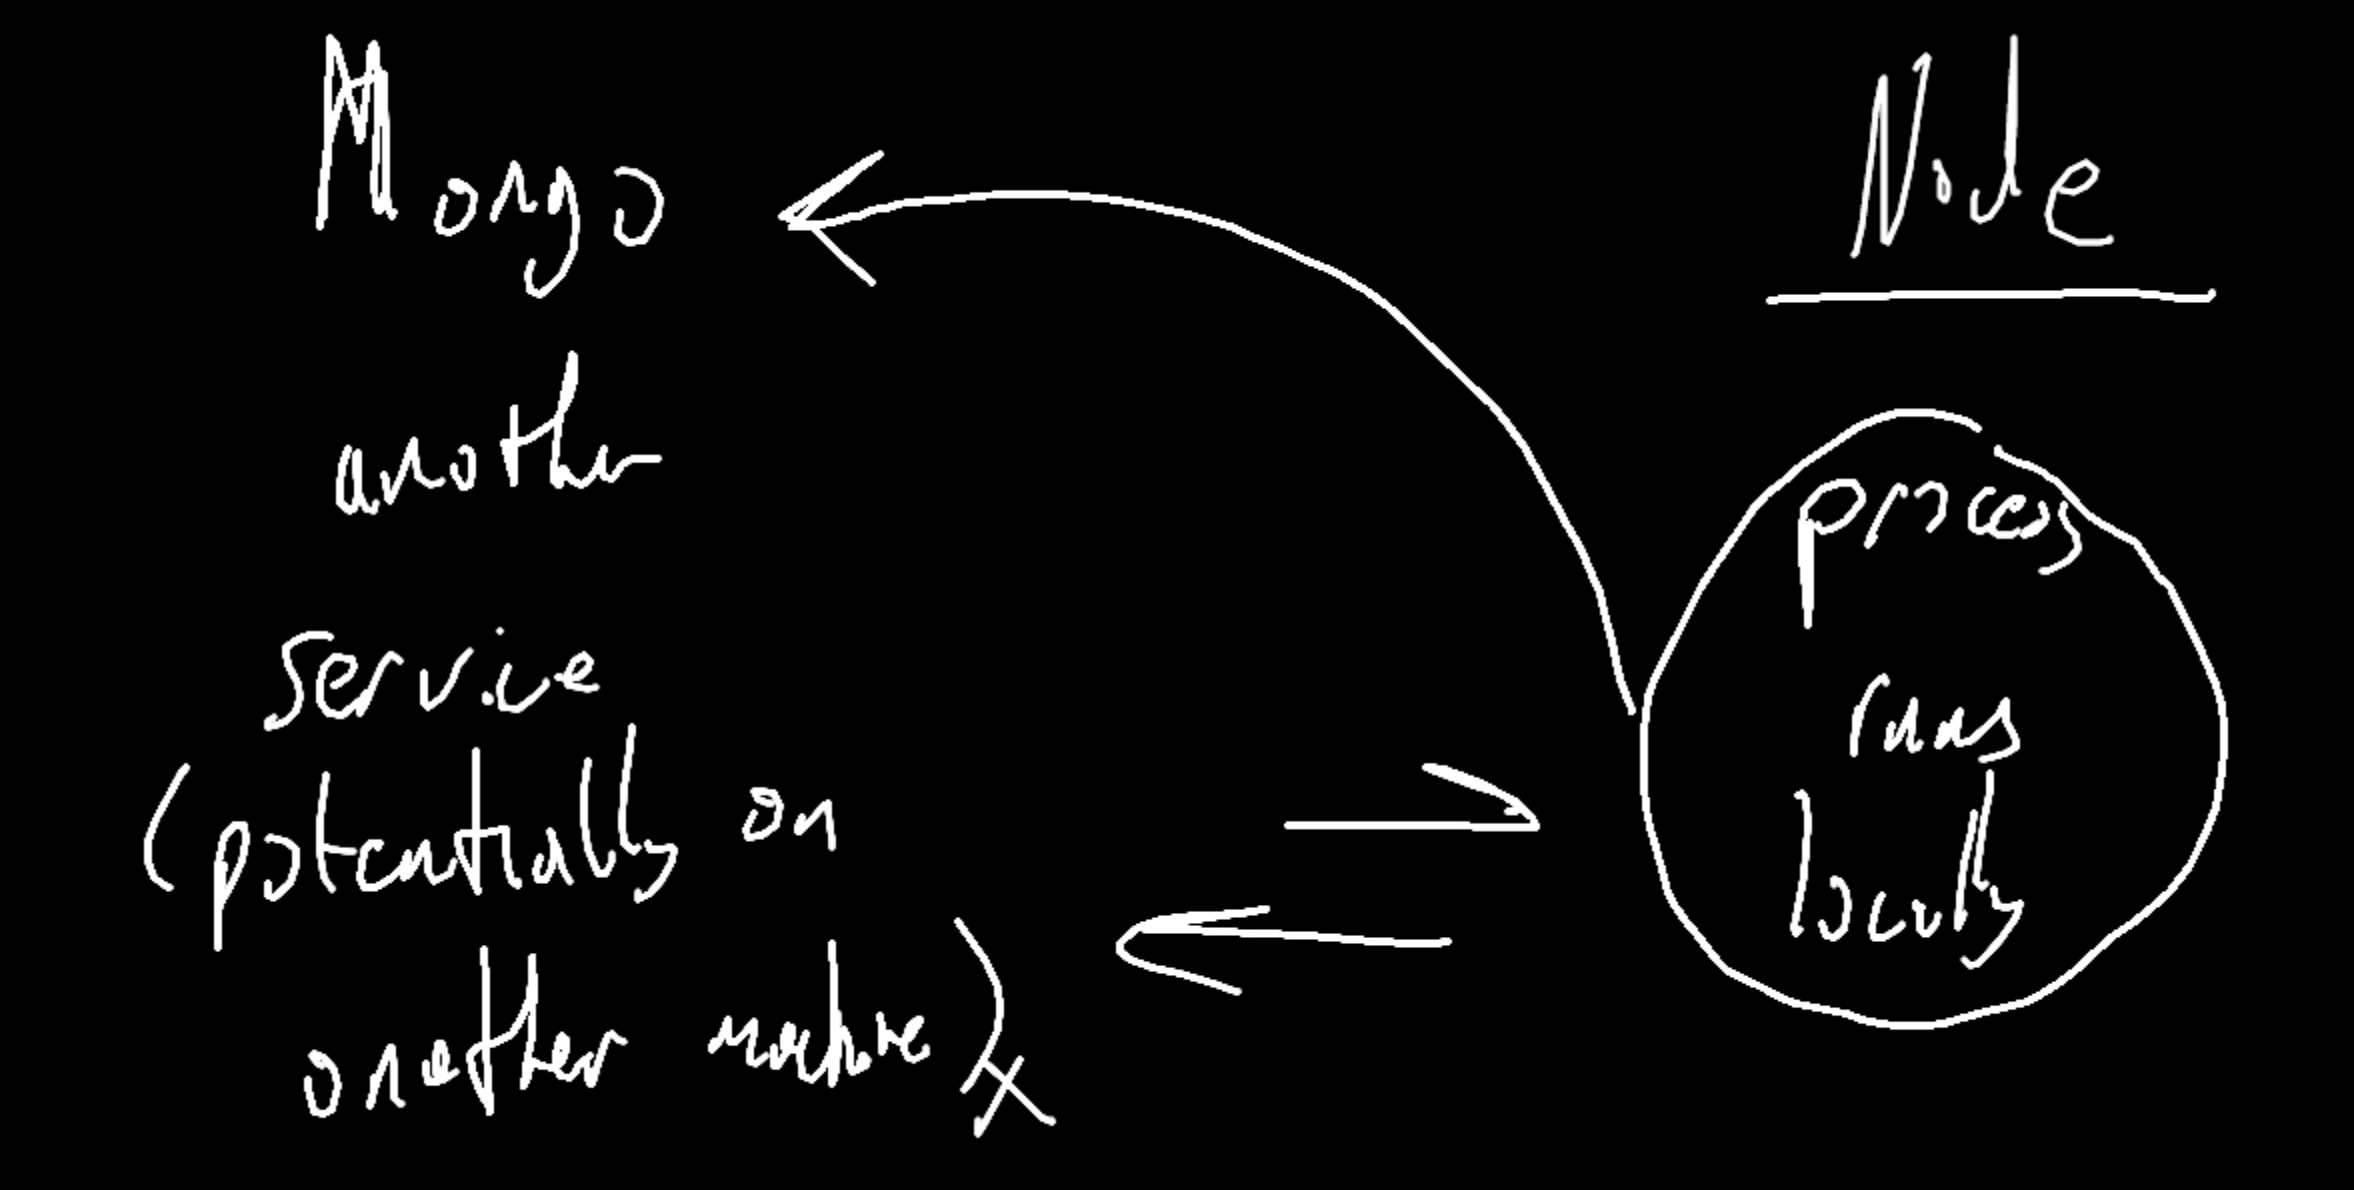 Mongo
another
service
(potentially on
another machine)
Node
process
runs
locally